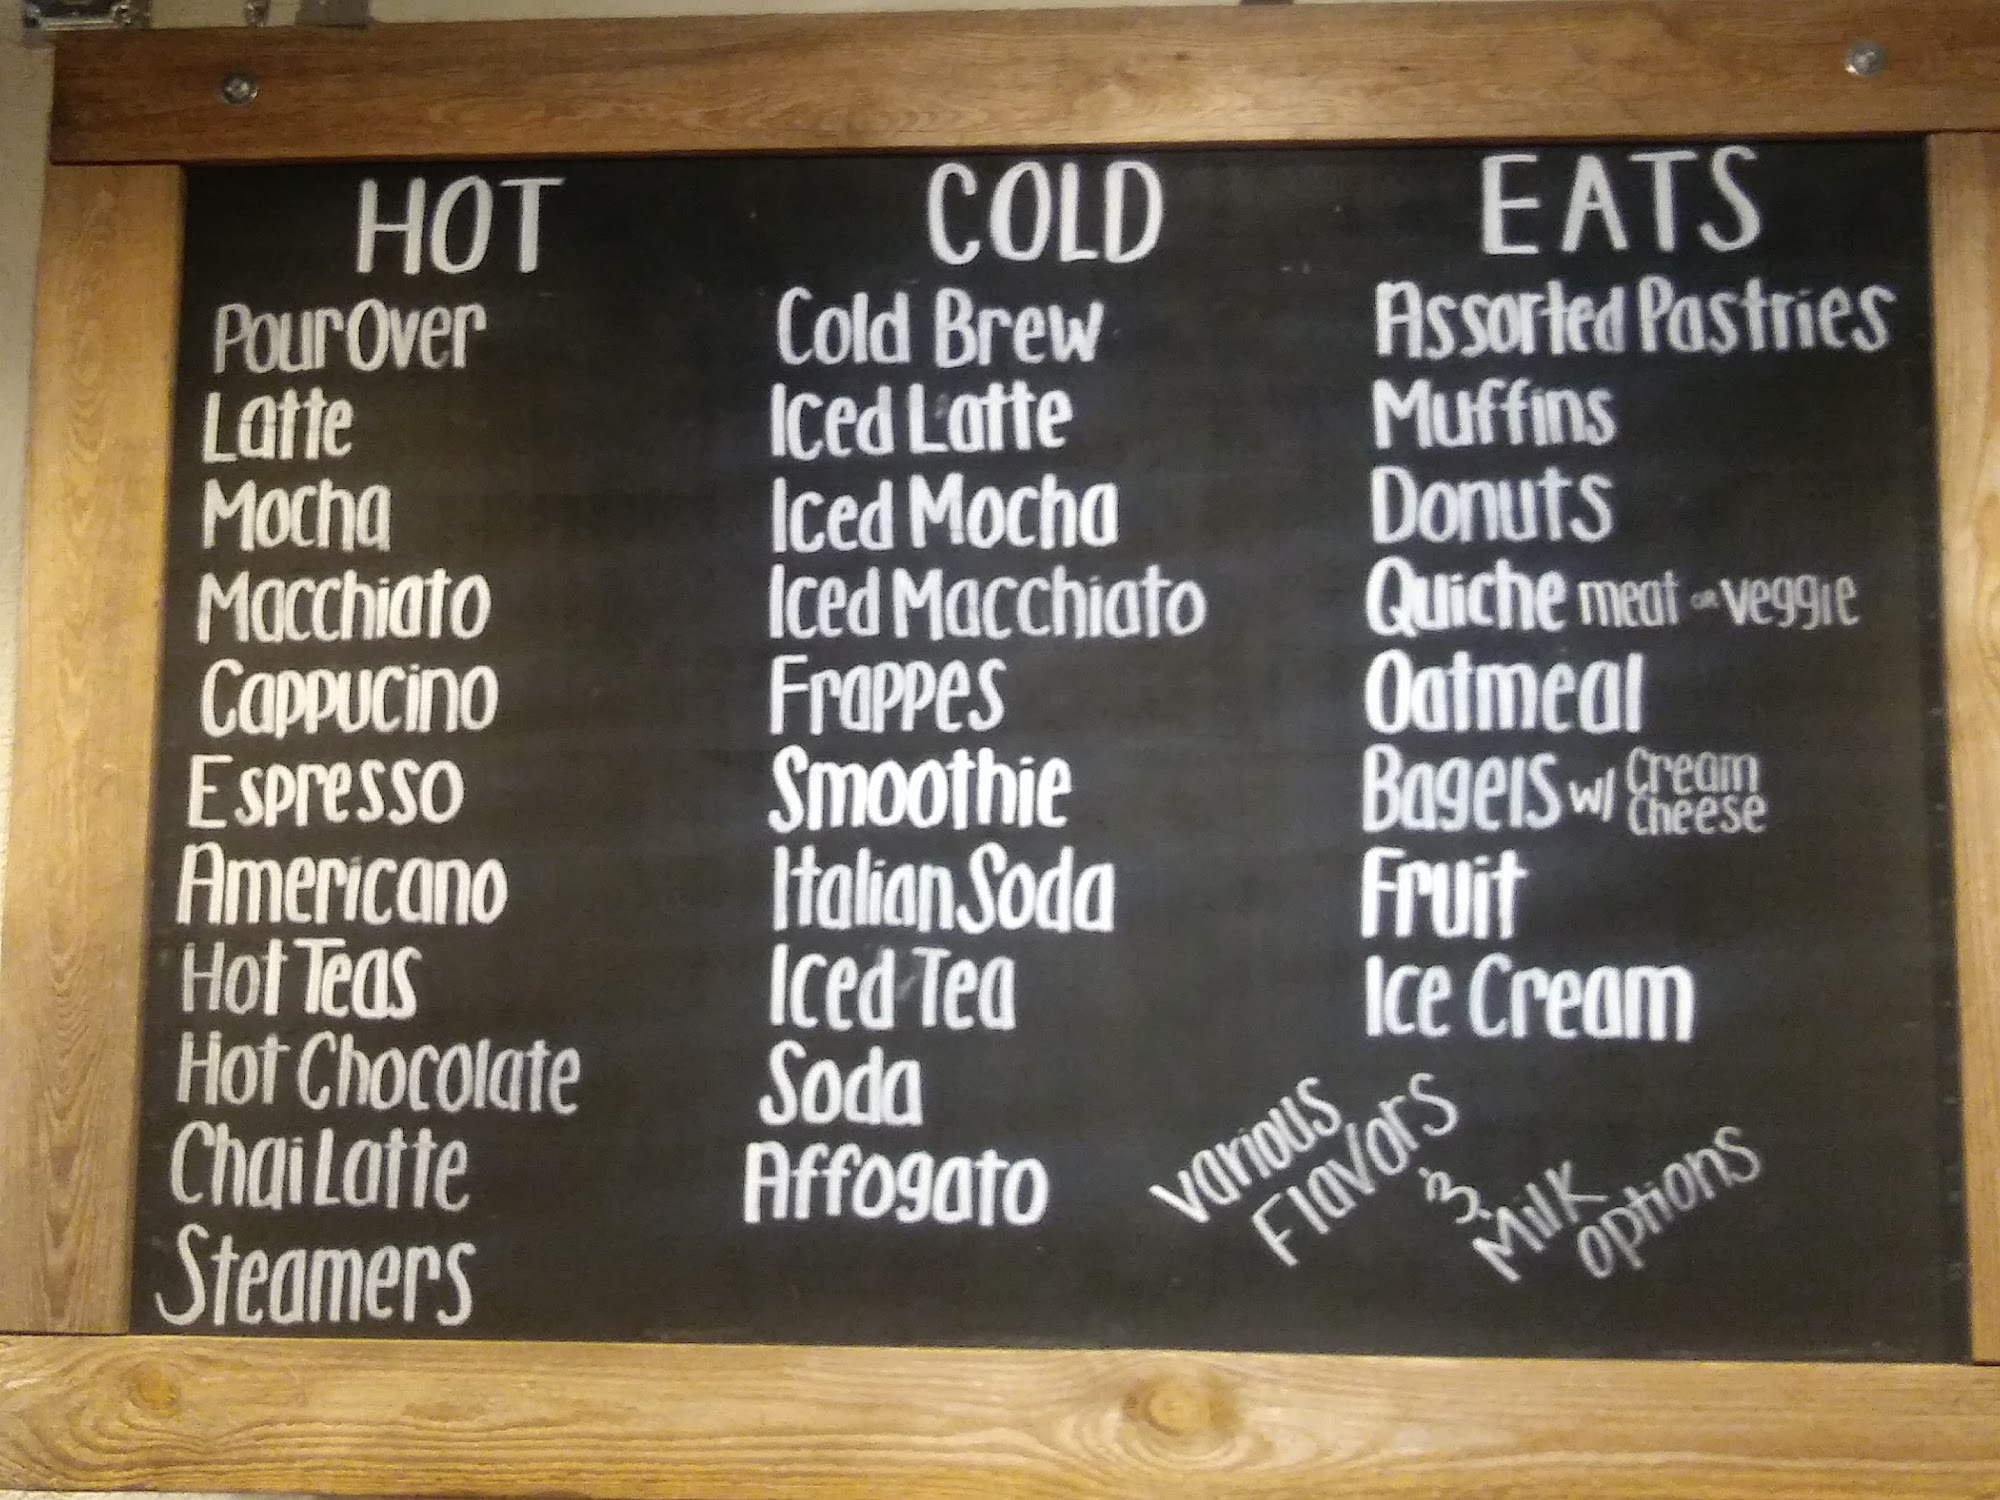 HOT
PourOver
Latte
Mocha
Macchiato
Cappucino
Espresso
Americano
Hot Teas
Hot Chocolate
Chai Latte
Steamers
COLD
Cold Brew
Iced Latte
Iced Mocha
Iced Macchiato
Frappes
Smoothie
Italian Soda
Iced Tea
Soda
Affogato
EATS
Assorted Pastries
Muffins
Donuts
Quiche meat or veggie
Oatmeal
Bagels w/ Cream
Cheese
Fruit
Ice Cream
Various
Flavors
&
Milk
options